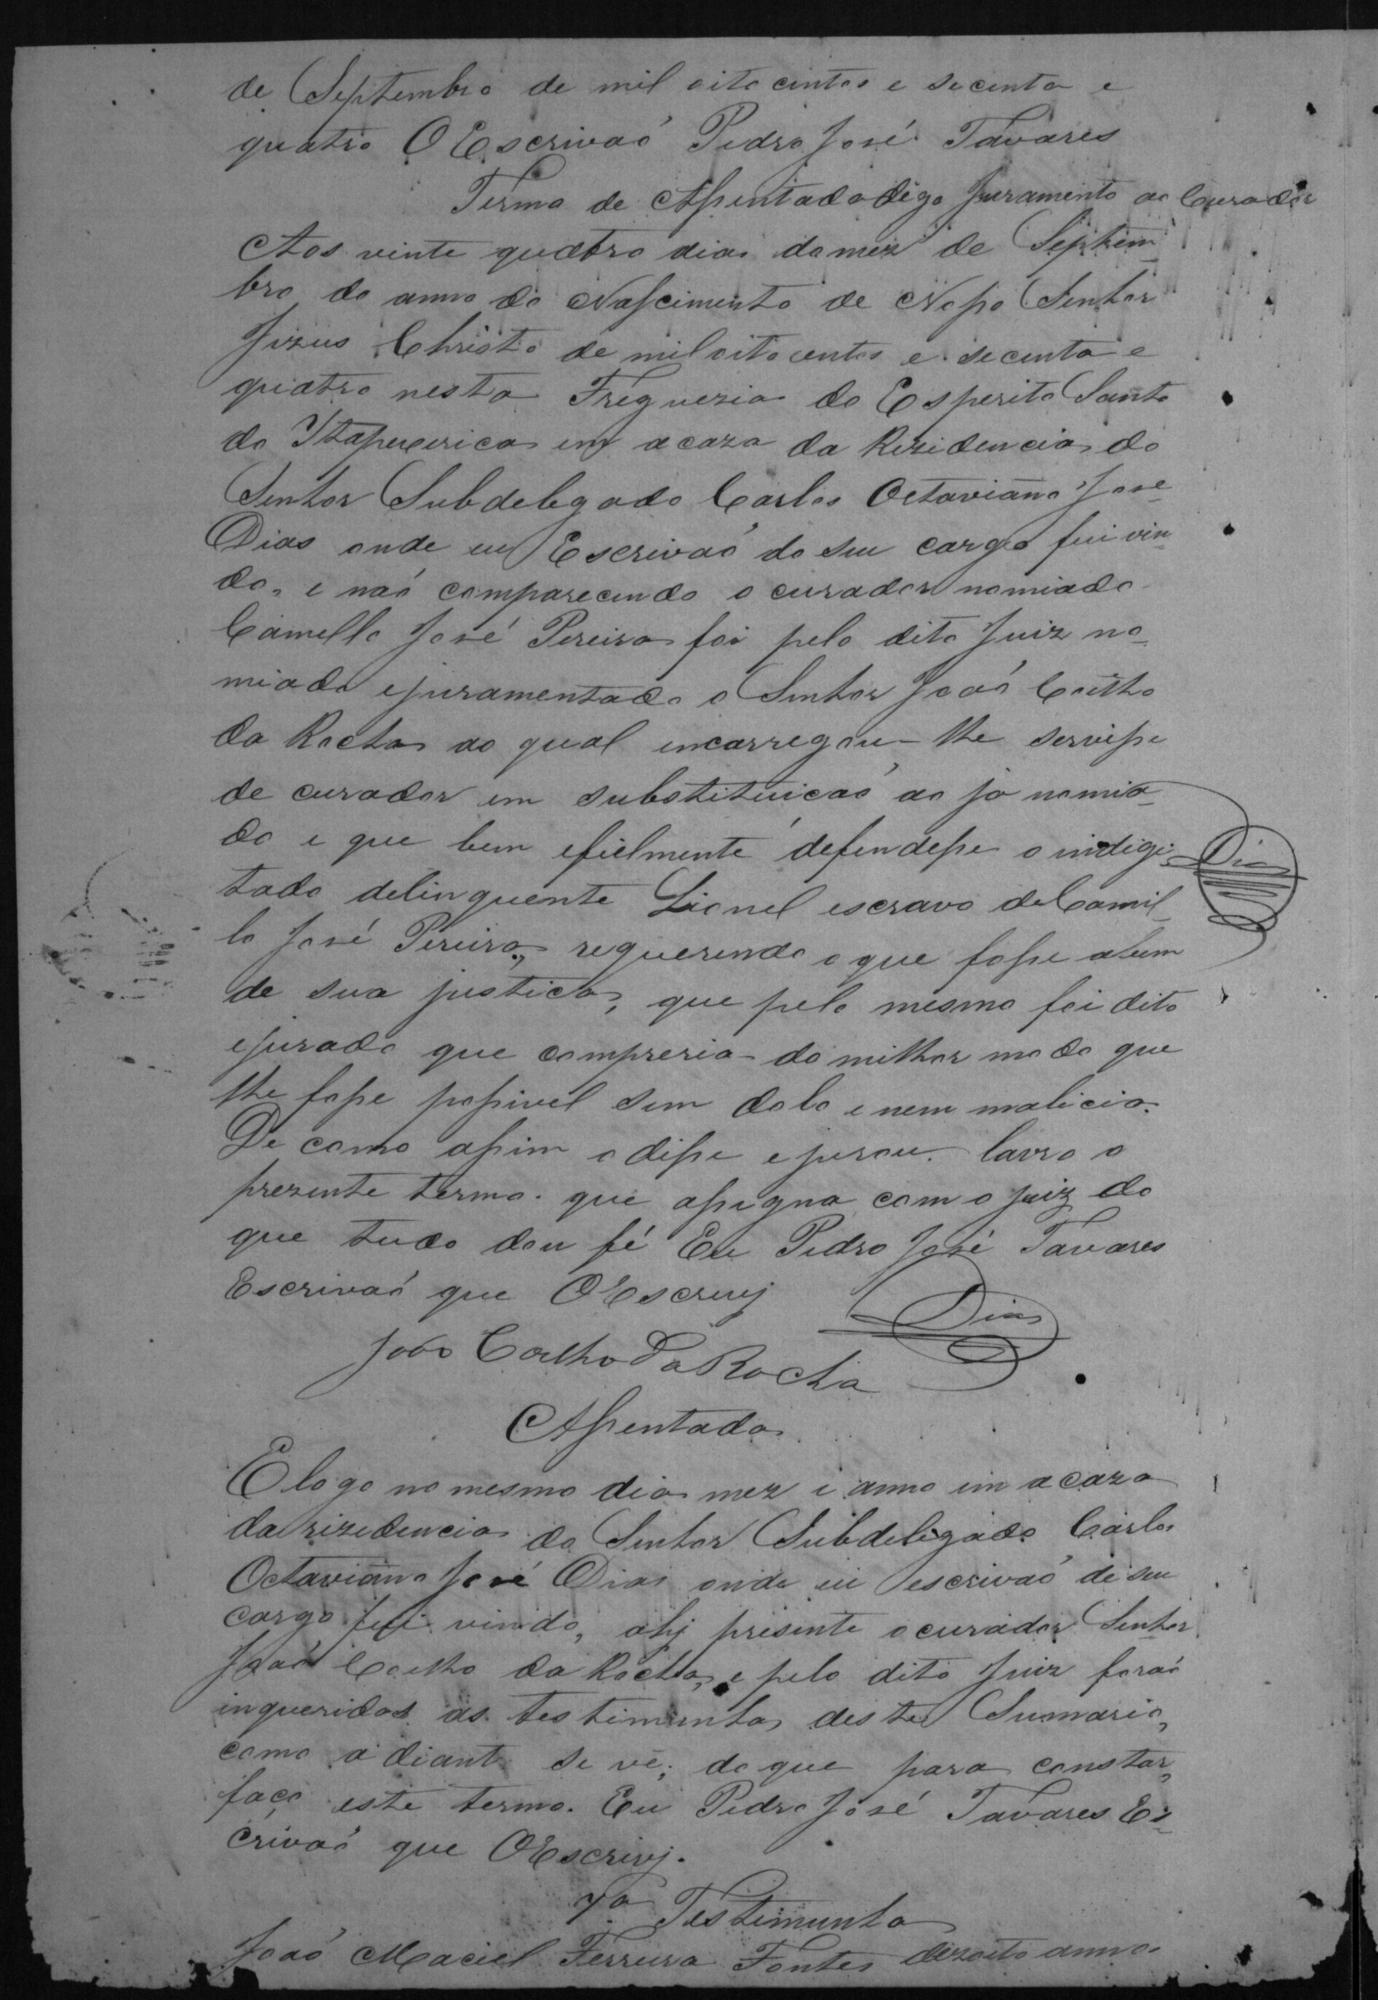 de Septembro de mil oito centos e secenta e
quatro O Escrivaõ Pedro José Tavares
Termo de Assentada digo Juramento ao Curador
Aos vinte quatro dias do mez de Septem-
bro do anno do Nascimento de Nosso Senhor
Jizus Christo de mil oito centos e secenta e
quatro nesta Freguezia do Esperito Santo
da Itapecerica em a caza da Rezidencia do
Senhor Subdelegado Carlos Octaviano José
Dias onde eu Escrivaõ do seu cargo fui vin-
do, e naõ comparecendo o curador nomiado
Camello José Pereira foi pelo dito Juiz no-
miado e juramentado o Senhor Joaõ Coelho
da Rocha ao qual encarregou-lhe servisse
de curador em substituicaõ ao já nomia-
do e que bem efielmente defendesse o indigi-
tado delinquente Lionel escravo de Camil-
lo José Pereira, requerendo o que fosse abem
de sua justica, que pelo mesmo foi dito
ejurado que compreria do milhor modo que
lhe fosse possivel sem dolo e nem malicia.
De como assim o disse ejurou lavro o
prezente termo. que assigna com o juiz do
que tudo dou fé Eu Pedro José Tavares
Escrivaõ que OEscrevj
Dias
Dias
Joaõ Coelho da Rocha
Assentada
E logo no mesmo dia mez e anno em a caza
da rizedencia do Senhor Subdelegado Carlos
Octaviano José Dias onde eu escrivaõ de seu
cargo fui vindo, ahj prisente o curador Senhor
Joaõ Coelho da Rocha, e pelo dito Juiz foraõ
inqueridas as testimunhas deste Summario,
como a diante se vê; do que para constar,
faço este termo. Eu Pedro José Tavares Es-
crivaõ que OEscrevj.
7ª Testimunha
Joaõ Maciel Ferreira Fontes dezoito annos